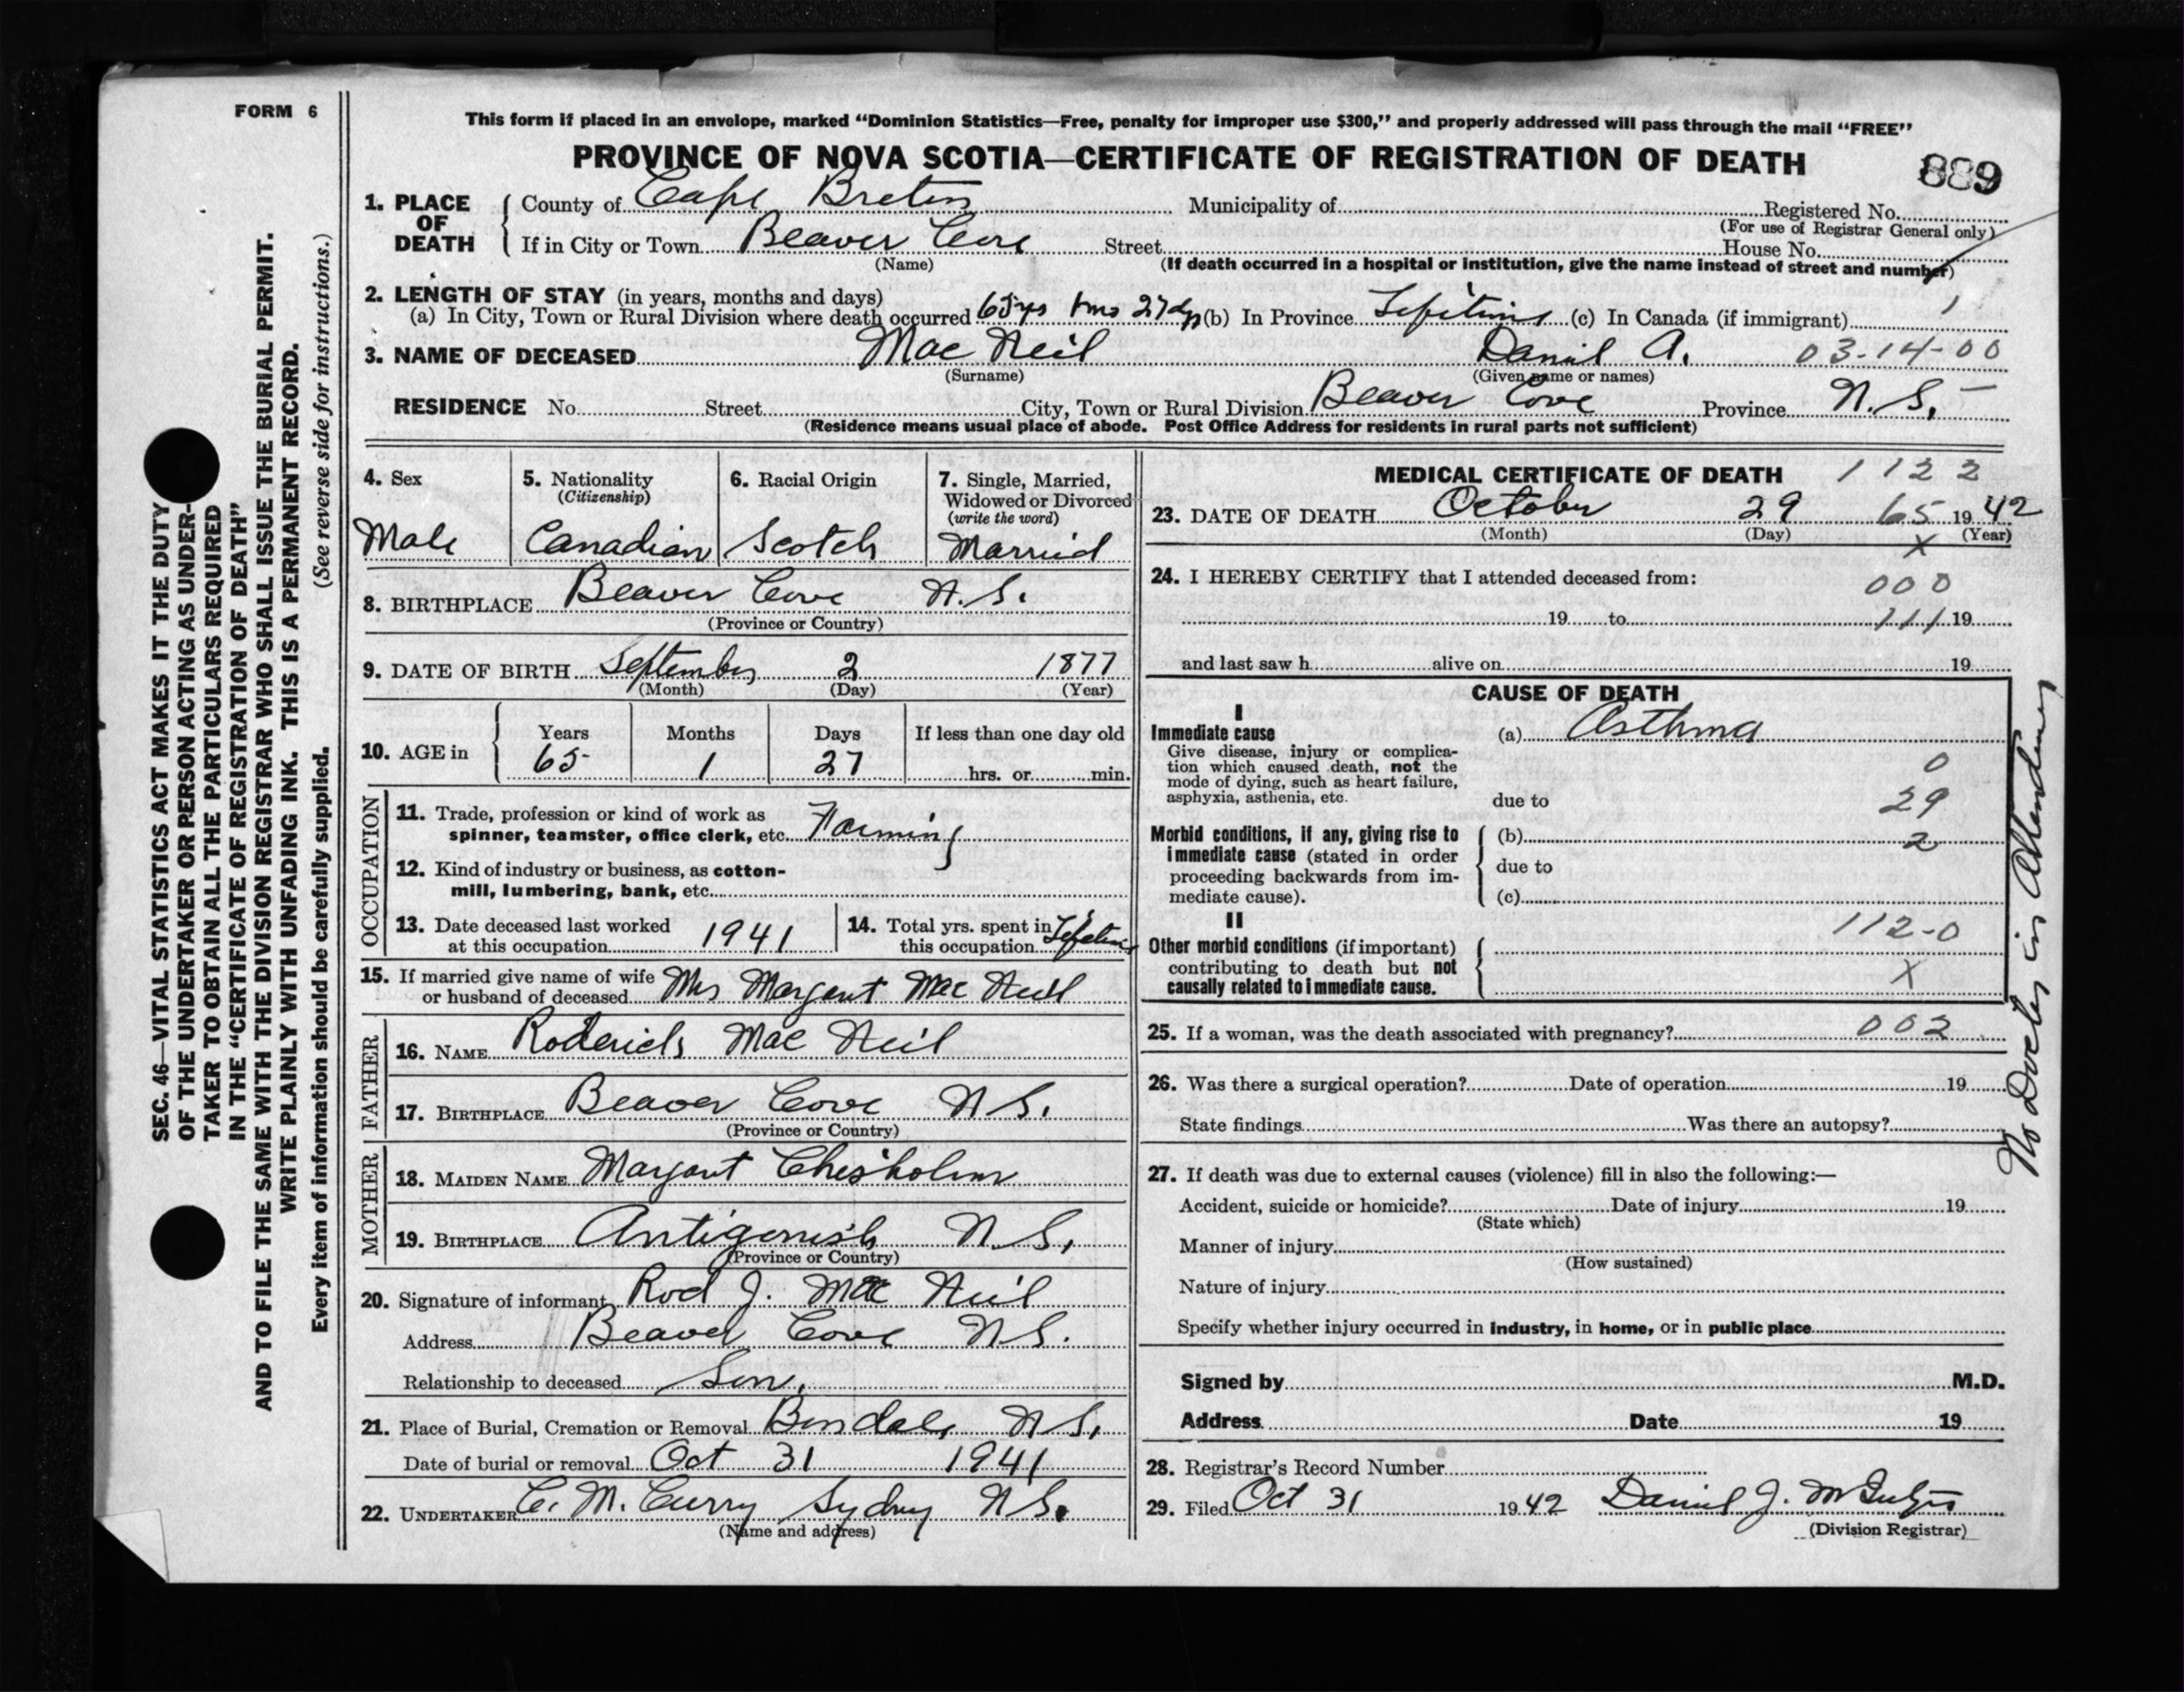 FORM 6
SEC. 46—VITAL STATISTICS ACT MAKES IT THE DUTY
OF THE UNDERTAKER OR PERSON ACTING AS UNDER-
TAKER TO OBTAIN ALL THE PARTICULARS REQUIRED
IN THE "CERTIFICATE OF REGISTRATION OF DEATH"
AND TO FILE THE SAME WITH THE DIVISION REGISTRAR WHO SHALL ISSUE THE BURIAL PERMIT.
WRITE PLAINLY WITH UNFADING INK. THIS IS A PERMANENT RECORD.
Every item of information should be carefully supplied. (See reverse side for instructions.)
This form if placed in an envelope, marked "Dominion Statistics—Free, penalty for improper use $300," and properly addressed will pass through the mail "FREE"
PROVINCE OF NOVA SCOTIA—CERTIFICATE OF REGISTRATION OF DEATH 889
1. PLACE OF DEATH County of Cape Breton Municipality of Registered No.
(For use of Registrar General only)
If in City or Town Beaver Cove Street House No.
(Name) (If death occurred in a hospital or institution, give the name instead of street and number)
2. LENGTH OF STAY (in years, months and days)
(a) In City, Town or Rural Division where death occurred 65 yrs 1 mo 27 dys (b) In Province Lifetime (c) In Canada (if immigrant) 1
3. NAME OF DECEASED Mac Neil Daniel A. 03-14-00
(Surname) (Given name or names)
RESIDENCE No. Street City, Town or Rural Division Beaver Cove Province N.S.
(Residence means usual place of abode. Post Office Address for residents in rural parts not sufficient)
4. Sex 5. Nationality (Citizenship) 6. Racial Origin 7. Single, Married, Widowed or Divorced (write the word)
Male Canadian Scotch Married
8. BIRTHPLACE Beaver Cove N.S.
(Province or Country)
9. DATE OF BIRTH September 2 1877
(Month) (Day) (Year)
10. AGE in Years Months Days If less than one day old
65 1 27 hrs. or min.
OCCUPATION
11. Trade, profession or kind of work as
spinner, teamster, office clerk, etc. Farming
12. Kind of industry or business, as cotton-
mill, lumbering, bank, etc.
13. Date deceased last worked
at this occupation 1941
14. Total yrs. spent in
this occupation Lifetime
15. If married give name of wife
or husband of deceased Mrs Margaret Mac Neil
FATHER
16. NAME Roderick Mac Neil
17. BIRTHPLACE Beaver Cove N.S.
(Province or Country)
MOTHER
18. MAIDEN NAME Margaret Chisholm
19. BIRTHPLACE Antigonish N.S.
(Province or Country)
20. Signature of informant Rod J. Mac Neil
Address Beaver Cove N.S.
Relationship to deceased Son.
21. Place of Burial, Cremation or Removal N.S.
Date of burial or removal Oct 31 1941
22. UNDERTAKER C. M. Curry Sydney N.S.
(Name and address)
MEDICAL CERTIFICATE OF DEATH 1122
23. DATE OF DEATH October 29 65 1942
(Month) (Day) X (Year)
24. I HEREBY CERTIFY that I attended deceased from: 000
19 to 111 19
and last saw h alive on 19
CAUSE OF DEATH
I
Immediate cause (a) Asthma
Give disease, injury or complica-
tion which caused death, not the
mode of dying, such as heart failure,
asphyxia, asthenia, etc.
0
due to 29
Morbid conditions, if any, giving rise to
immediate cause (stated in order
proceeding backwards from im-
mediate cause).
(b) 2
due to
(c)
II 112-0
Other morbid conditions (if important)
contributing to death but not
causally related to immediate cause.
X
No Doctor in Attendency
25. If a woman, was the death associated with pregnancy? 002
26. Was there a surgical operation? Date of operation 19
State findings Was there an autopsy?
27. If death was due to external causes (violence) fill in also the following:—
Accident, suicide or homicide? Date of injury 19
(State which)
Manner of injury
(How sustained)
Nature of injury
Specify whether injury occurred in industry, in home, or in public place
Signed by M.D.
Address Date 19
28. Registrar's Record Number
29. Filed Oct 31 1942 Daniel J.
(Division Registrar)